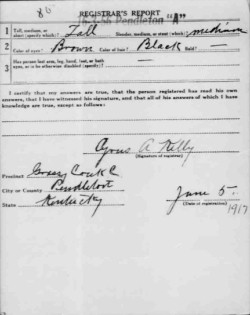 86
REGISTRAR'S REPORT
Pendleton "A"
1 Tall, medium, or short (specify which)? Tall Slender, medium, or stout (which)? medium
2 Color of eyes? Brown Color of hair? Black Bald? —
3 Has person lost arm, leg, hand, foot, or both eyes, or is he otherwise disabled (specify)?
I certify that my answers are true, that the person registered has read his own answers, that I have witnessed his signature, and that all of his answers of which I have knowledge are true, except as follows:
Cyrus A Kelly
(Signature of registrar)
Precinct
City or County Pendleton
State Kentucky
June 5. 1917
(Date of registration)